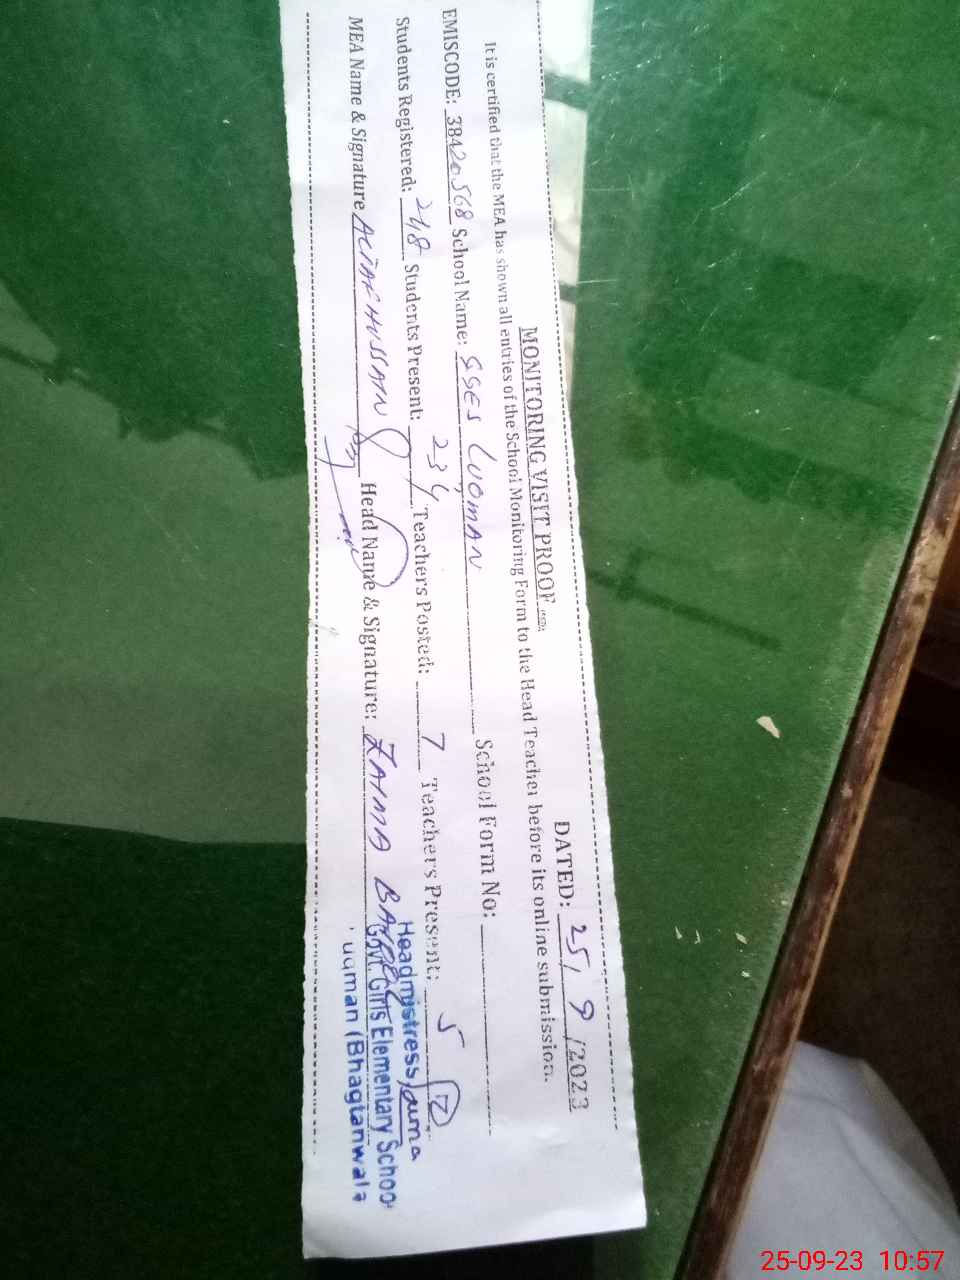 MONITORING VISIT PROOF
DATED: 25/9/2023
It is certified that the MEA has shown all entries of the School Monitoring Form to the Head Teacher before its online submission.
EMISCODE: 38420568 School Name: GGES LUQMAN School Form No:
Students Registered: 248 Students Present: 234 Teachers Posted: 7 Teachers Present: 5
MEA Name & Signature ALTAF HUSSAIN Head Name & Signature: ZAIMA
Headmistress
Govt. Girls Elementary School
uqman (Bhagtanwala
25-09-23 10:57